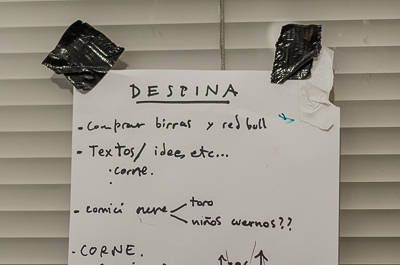 DESPINA
- Comprar birras y red bull
- Textos/ idee, etc...
· corne.
- comici nere < toro
niños cuernos??
- CORNE.